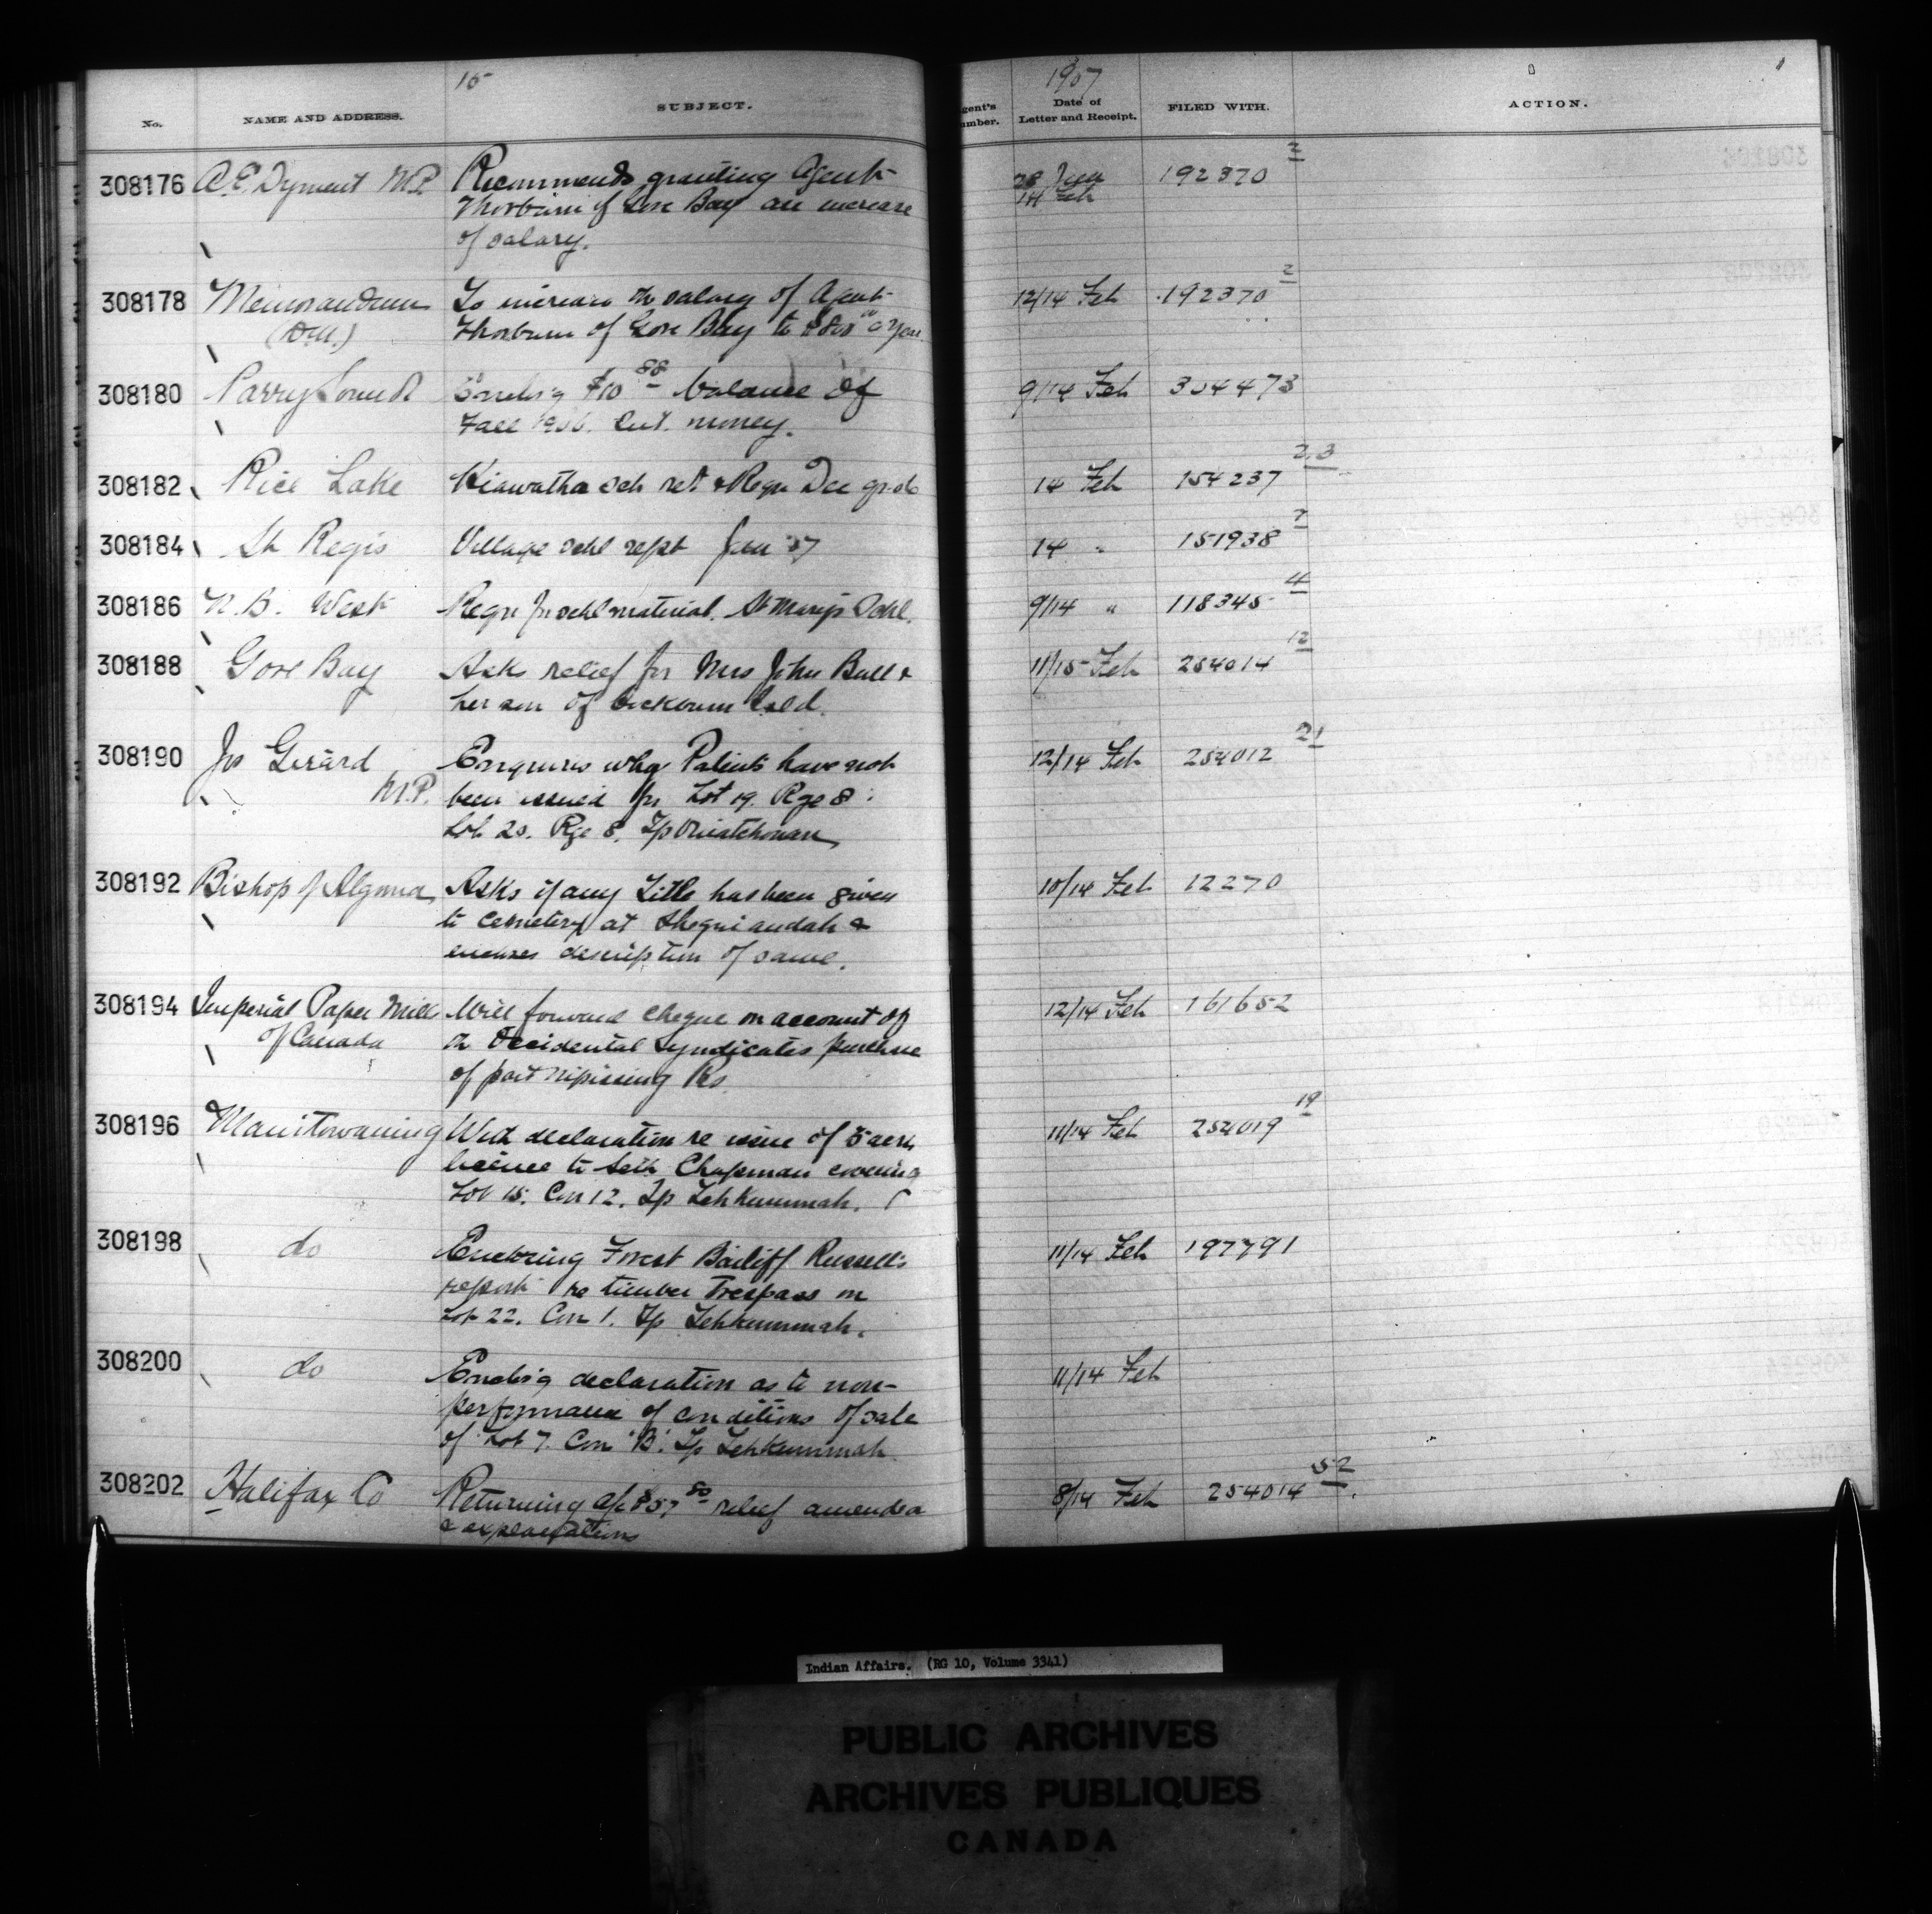 15
1907
No. NAME AND ADDRESS. SUBJECT. gent's umber. Date of Letter and Receipt. FILED WITH. ACTION.
308176 A.E. Dyment M.P. Recommends granting Agent 28 Jan 192370 2
Thorburn of Gore Bay an increase 14 Feb
of salary.
308178 Memorandum To increase the salary of Agent 12/14 Feb 192370 2
Thorburn of Gore Bay to a year
308180 Parry Sound Enclosg $10 88 balance of 9/14 Feb 304473
Fall 1906. Int. money.
308182 Rice Lake Hiawatha Sch ret & Reqn Dec qr 14 Feb 154237 2.3
308184 St Regis Village Schl rept Jan '07 14 " 151938 7
308186 N.B. West Reqn for schl material. St Marys Schl. 9/14 " 118345 4
308188 Gore Bay Asks relief for Mrs John Bull & 11/15 Feb 254014 12
her son of
308190 Jos Girard Enquires why Patents have not 12/14 Feb 254012 21
M.P. been issued for Lot 19. Rge 8.
Lot 20. Rge 8. Tp Ouiatchouan
308192 Bishop of Algoma Asks if any Title has been given 10/14 Feb 12270
to Cemetery at Sheguiandah &
encloses description of same.
308194 Imperial Paper Mills Will forward cheque on account of 12/14 Feb 161652
of Canada the Occidental Syndicates purchase
of part Nipissing Rs
308196 Manitowaning declaration re issue of 5 acre 11/14 Feb 254019 19
license to Seth Chapman covering
Lot 15. Con 12. Tp Tehkummah.
308198 do Enclosing Forest Bailiff Russell's 11/14 Feb 197791
report re timber Trespass on
Lot 22. Con 1. Tp Tehkummah.
308200 do Enclosg declaration as to non- 11/14 Feb
performance of conditions of sale
of Lot 7. Con 'B'. Tp Tehkummah
308202 Halifax Co Returning a/c $57 80 relief amended 8/14 Feb 254014 52
& explanations
Indian Affairs. (RG 10, Volume 3341)
PUBLIC ARCHIVES
ARCHIVES PUBLIQUES
CANADA